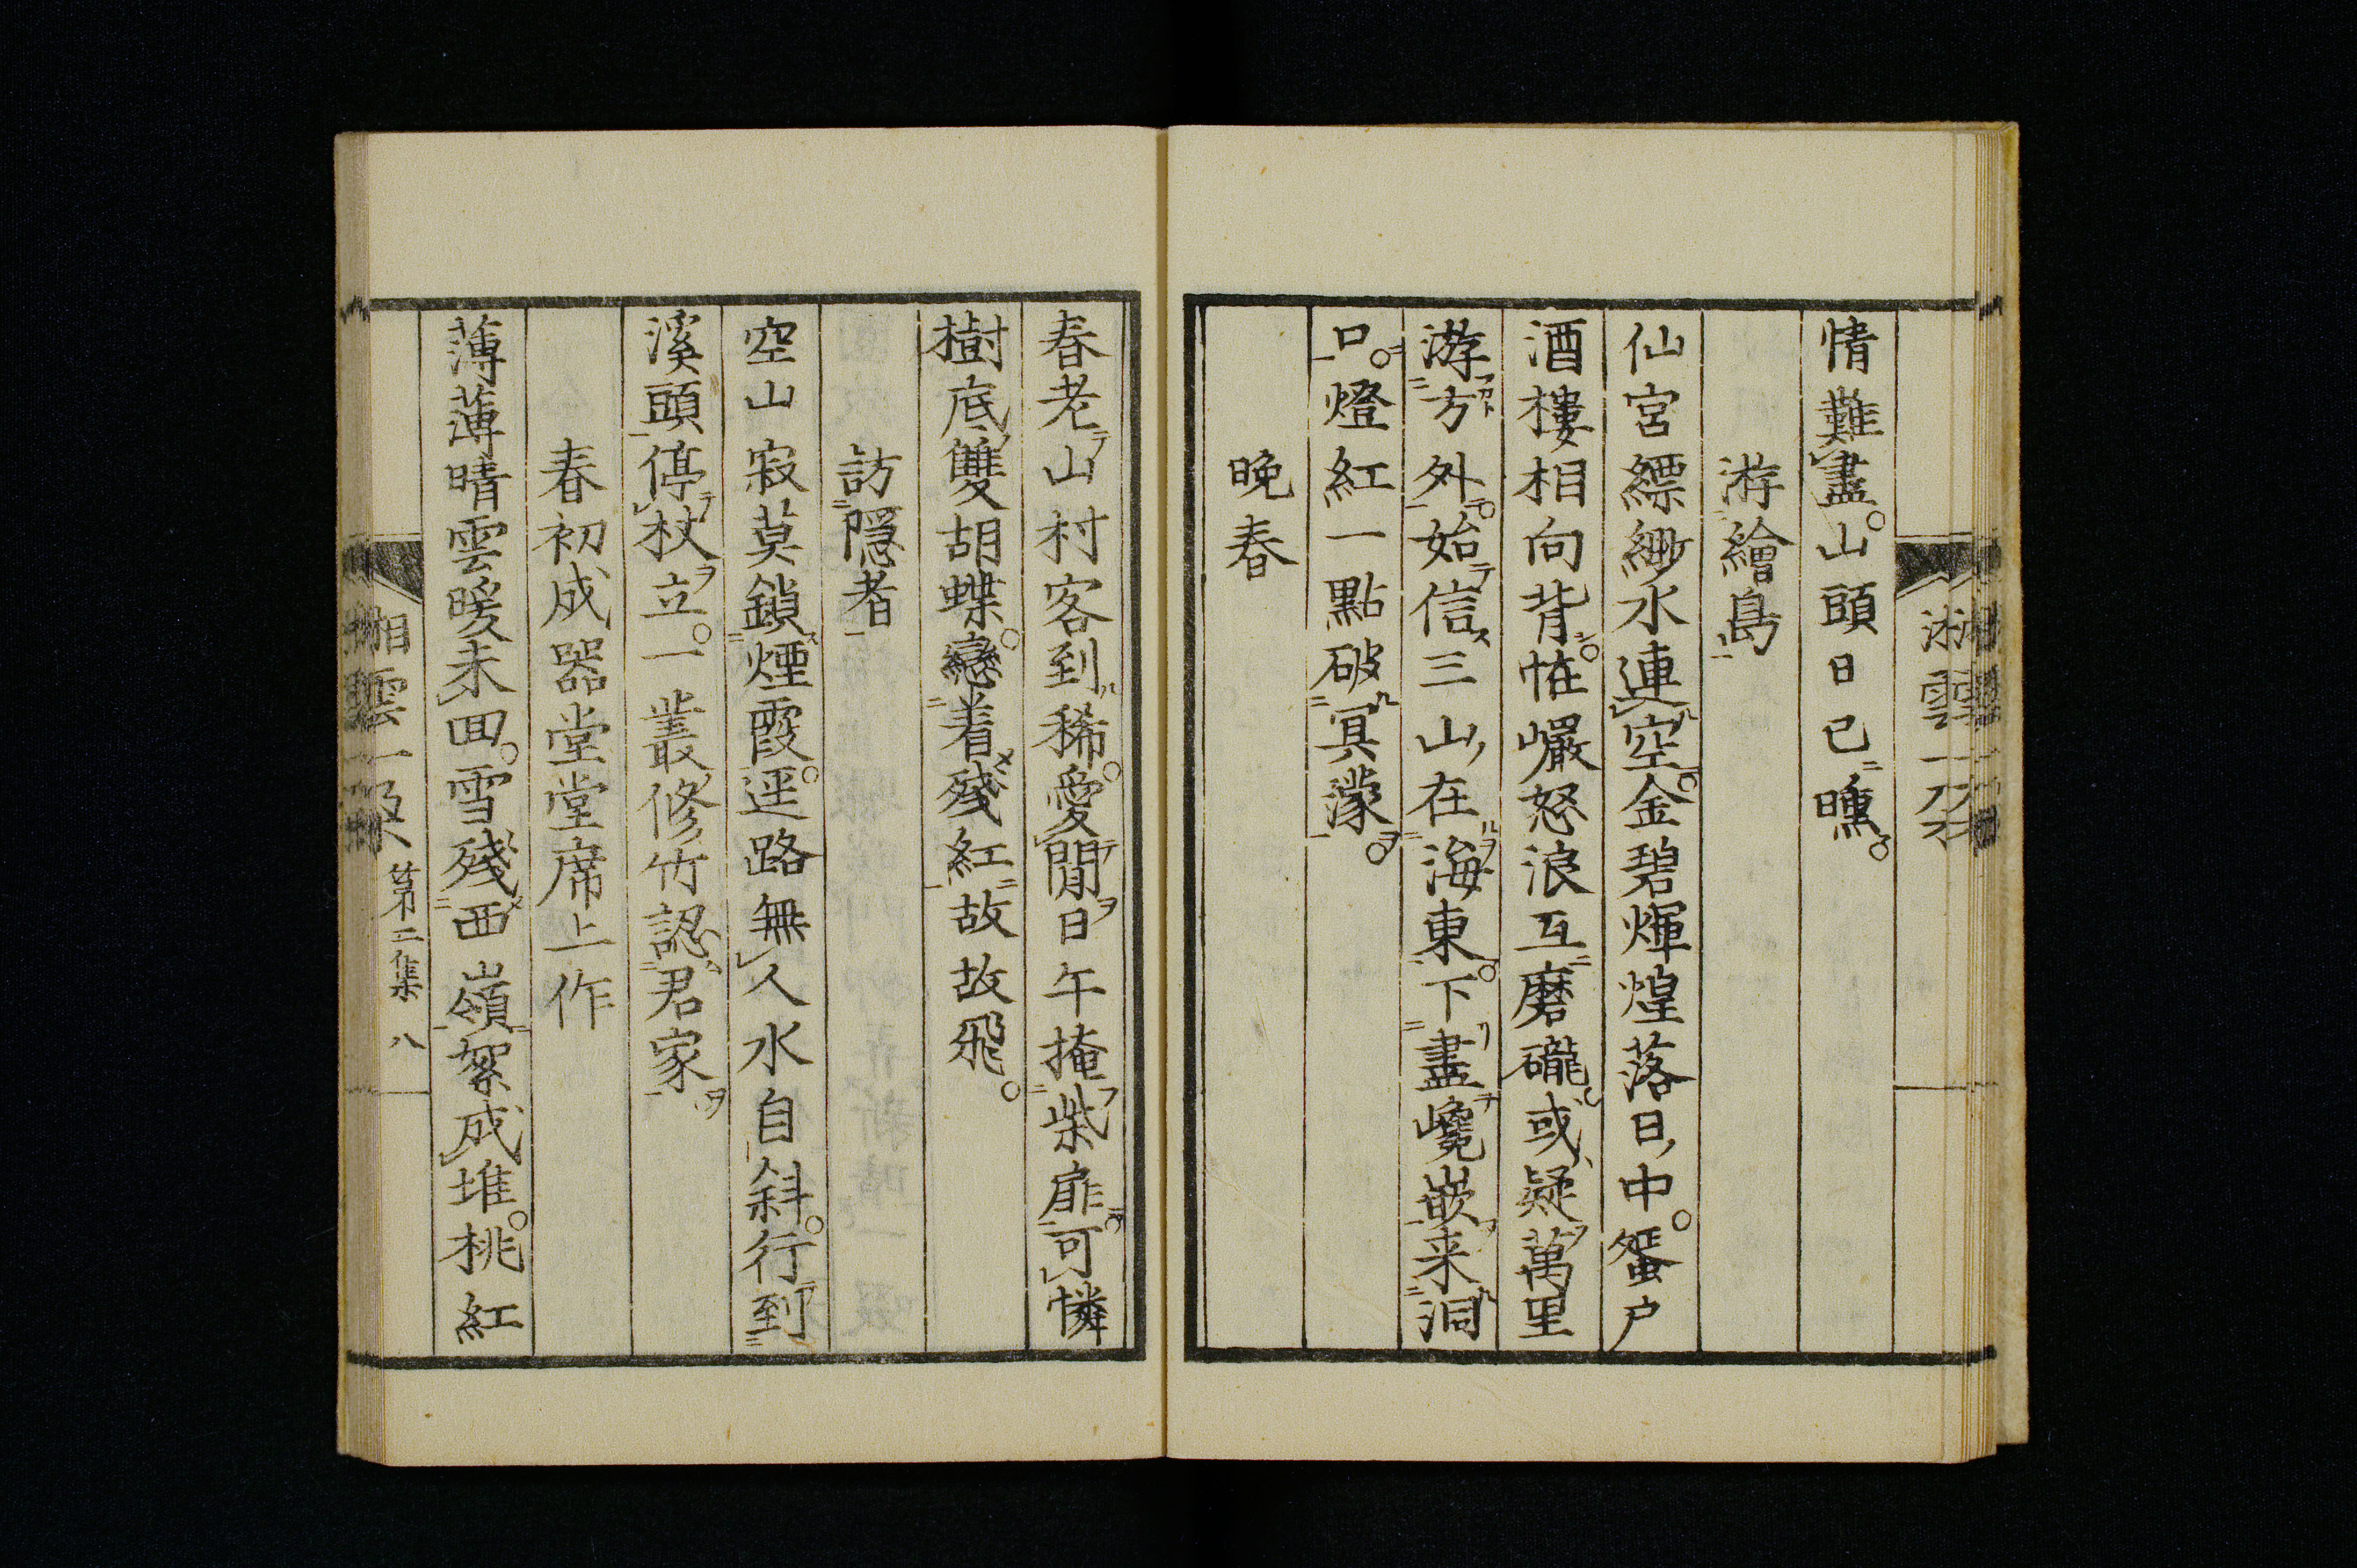 情難盡山頭日已曛
游繪島
仙宮縹緲水連空金碧輝煌落日中蜑戶
酒樓相向背怪巖怒浪互磨礲或疑萬里
游方外始信三山在海東下盡巉嵌来洞
口燈紅一點破冥濛
晩春
春老山村客到稀愛閒日午掩柴扉可憐
樹底雙胡蝶戀着殘紅故故飛
訪隱者
空山寂莫鎖煙霞逕路無人水自斜行到
溪頭停杖立一叢修竹認君家
春初成器堂堂席上作
薄薄晴雲暖未回雪殘西嶺絮成堆桃紅
湘雲
第二集 八